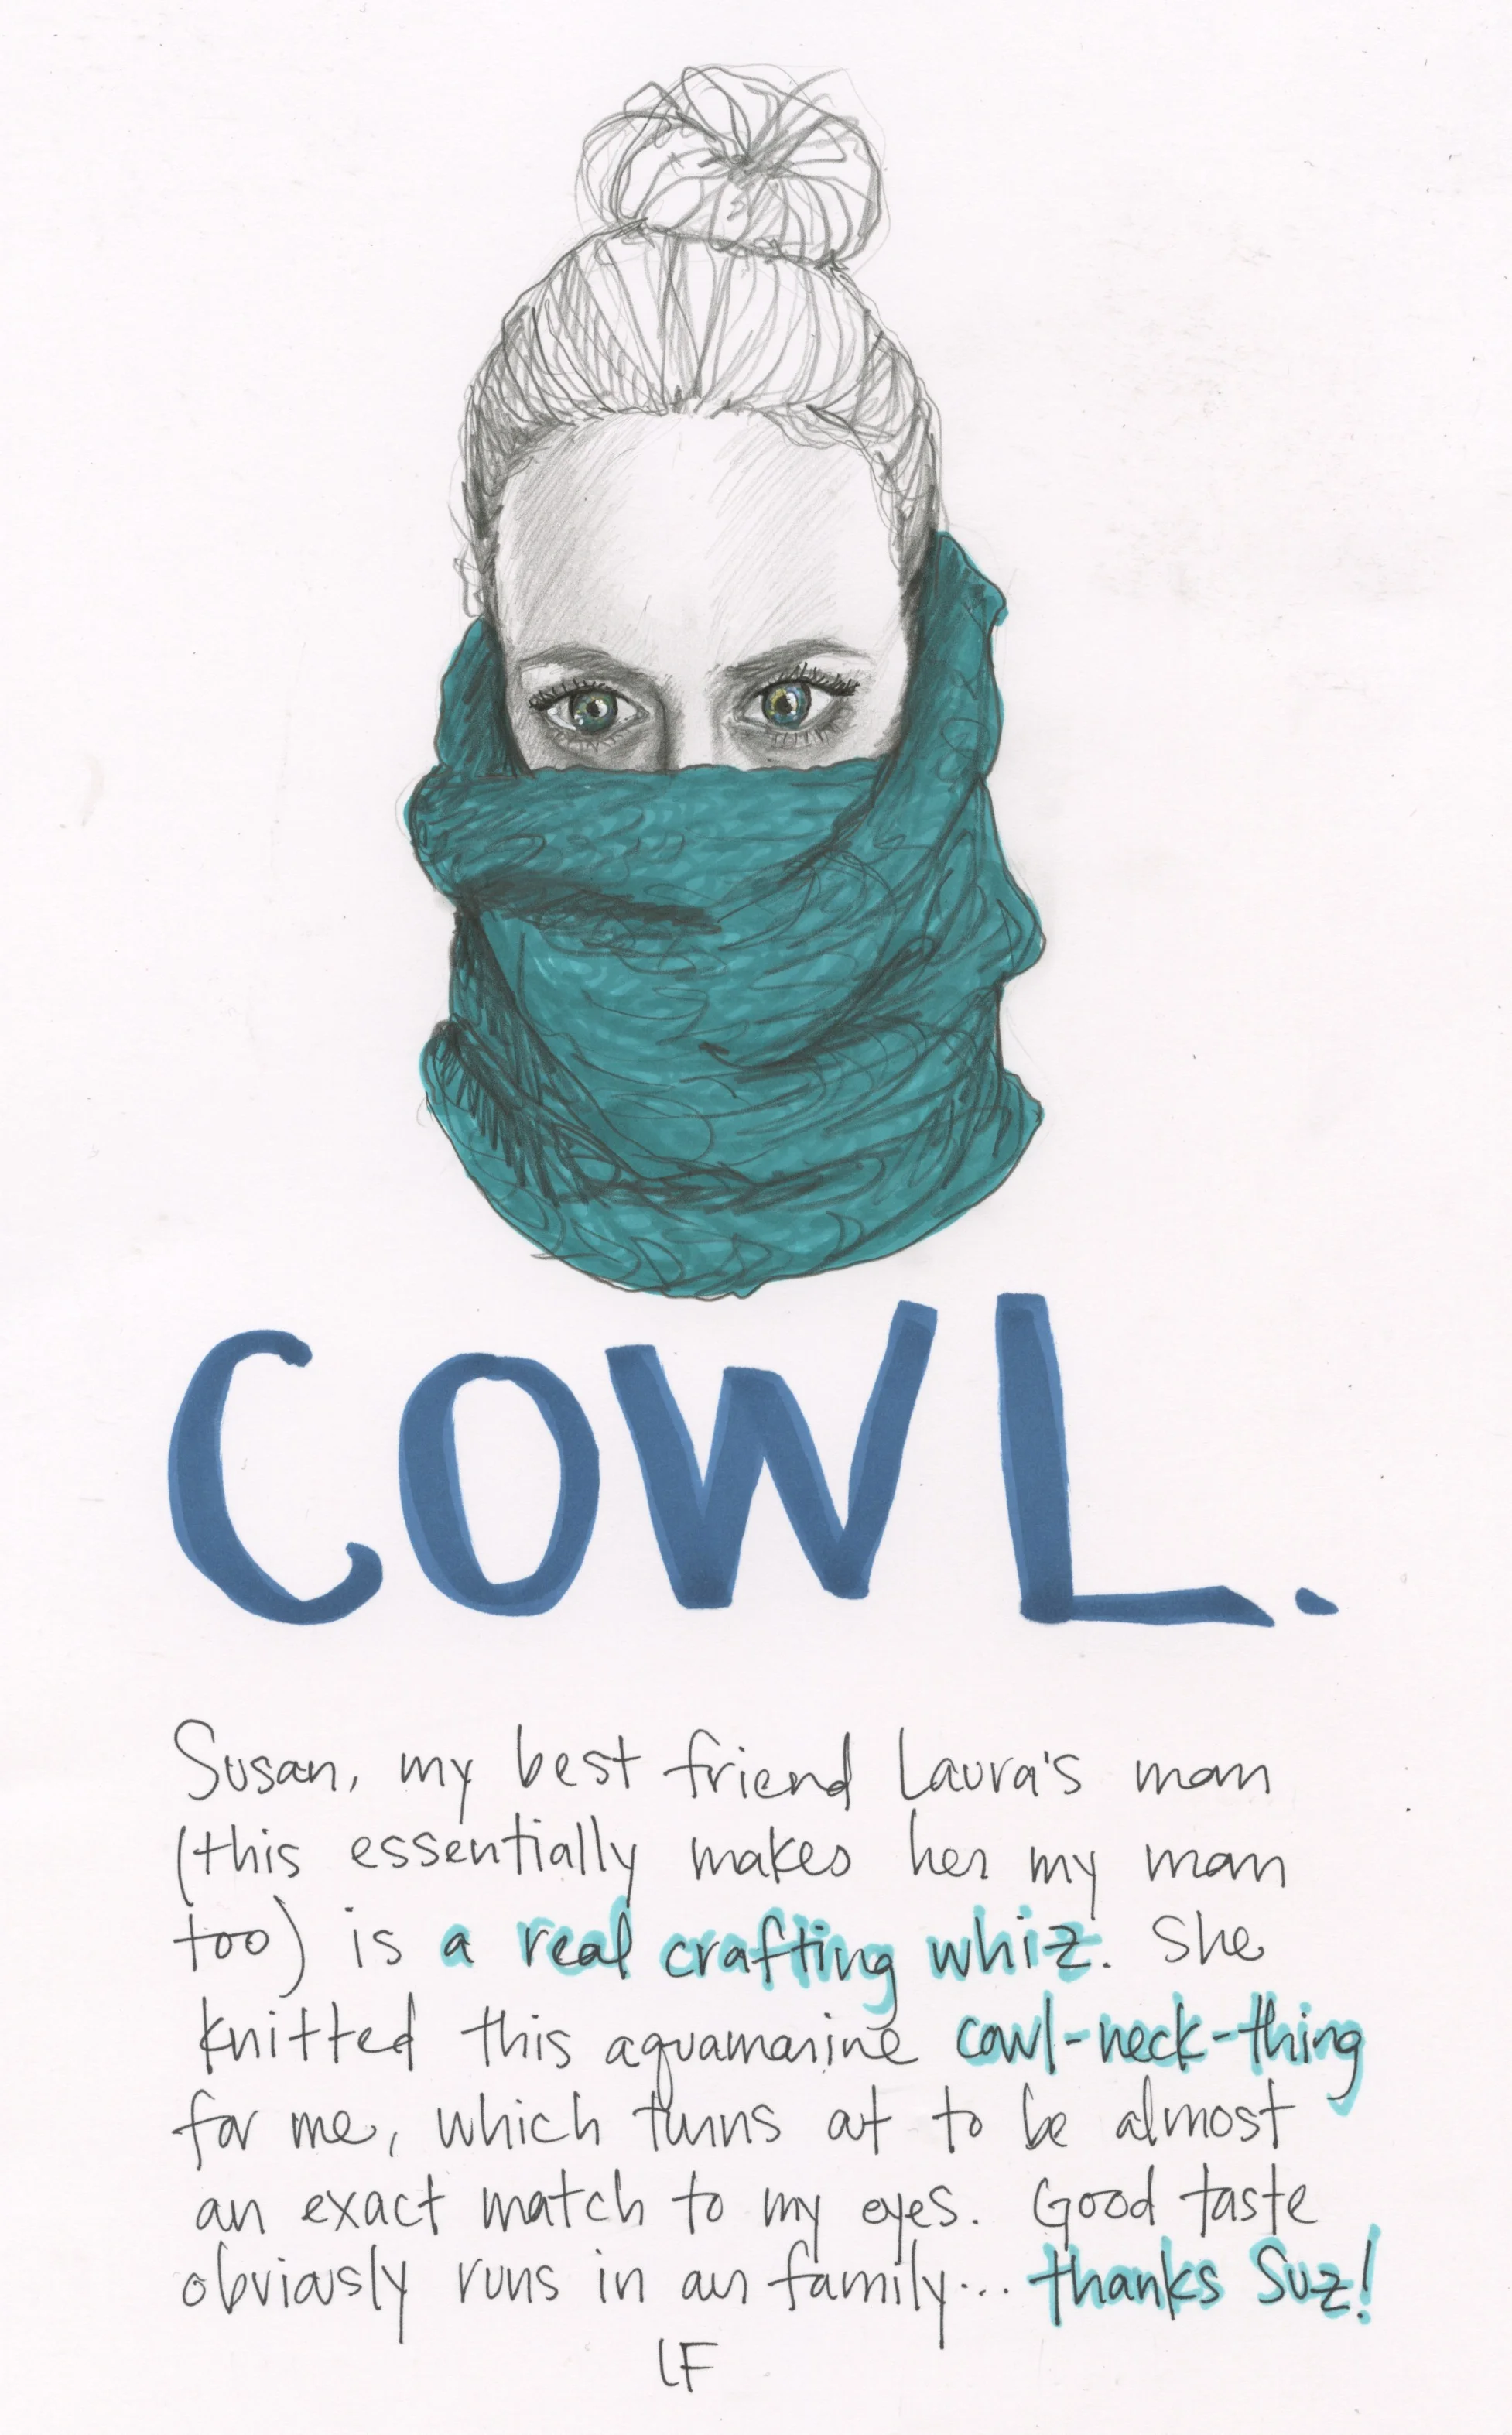 COWL.
Susan, my best friend Laura's mom
(this essentially makes her my mom
too) is a real crafting whiz. She
knitted this aquamarine cowl-neck-thing
for me, which turns out to be almost
an exact match to my eyes. Good taste
obviously runs in our family... thanks Suz!
LF